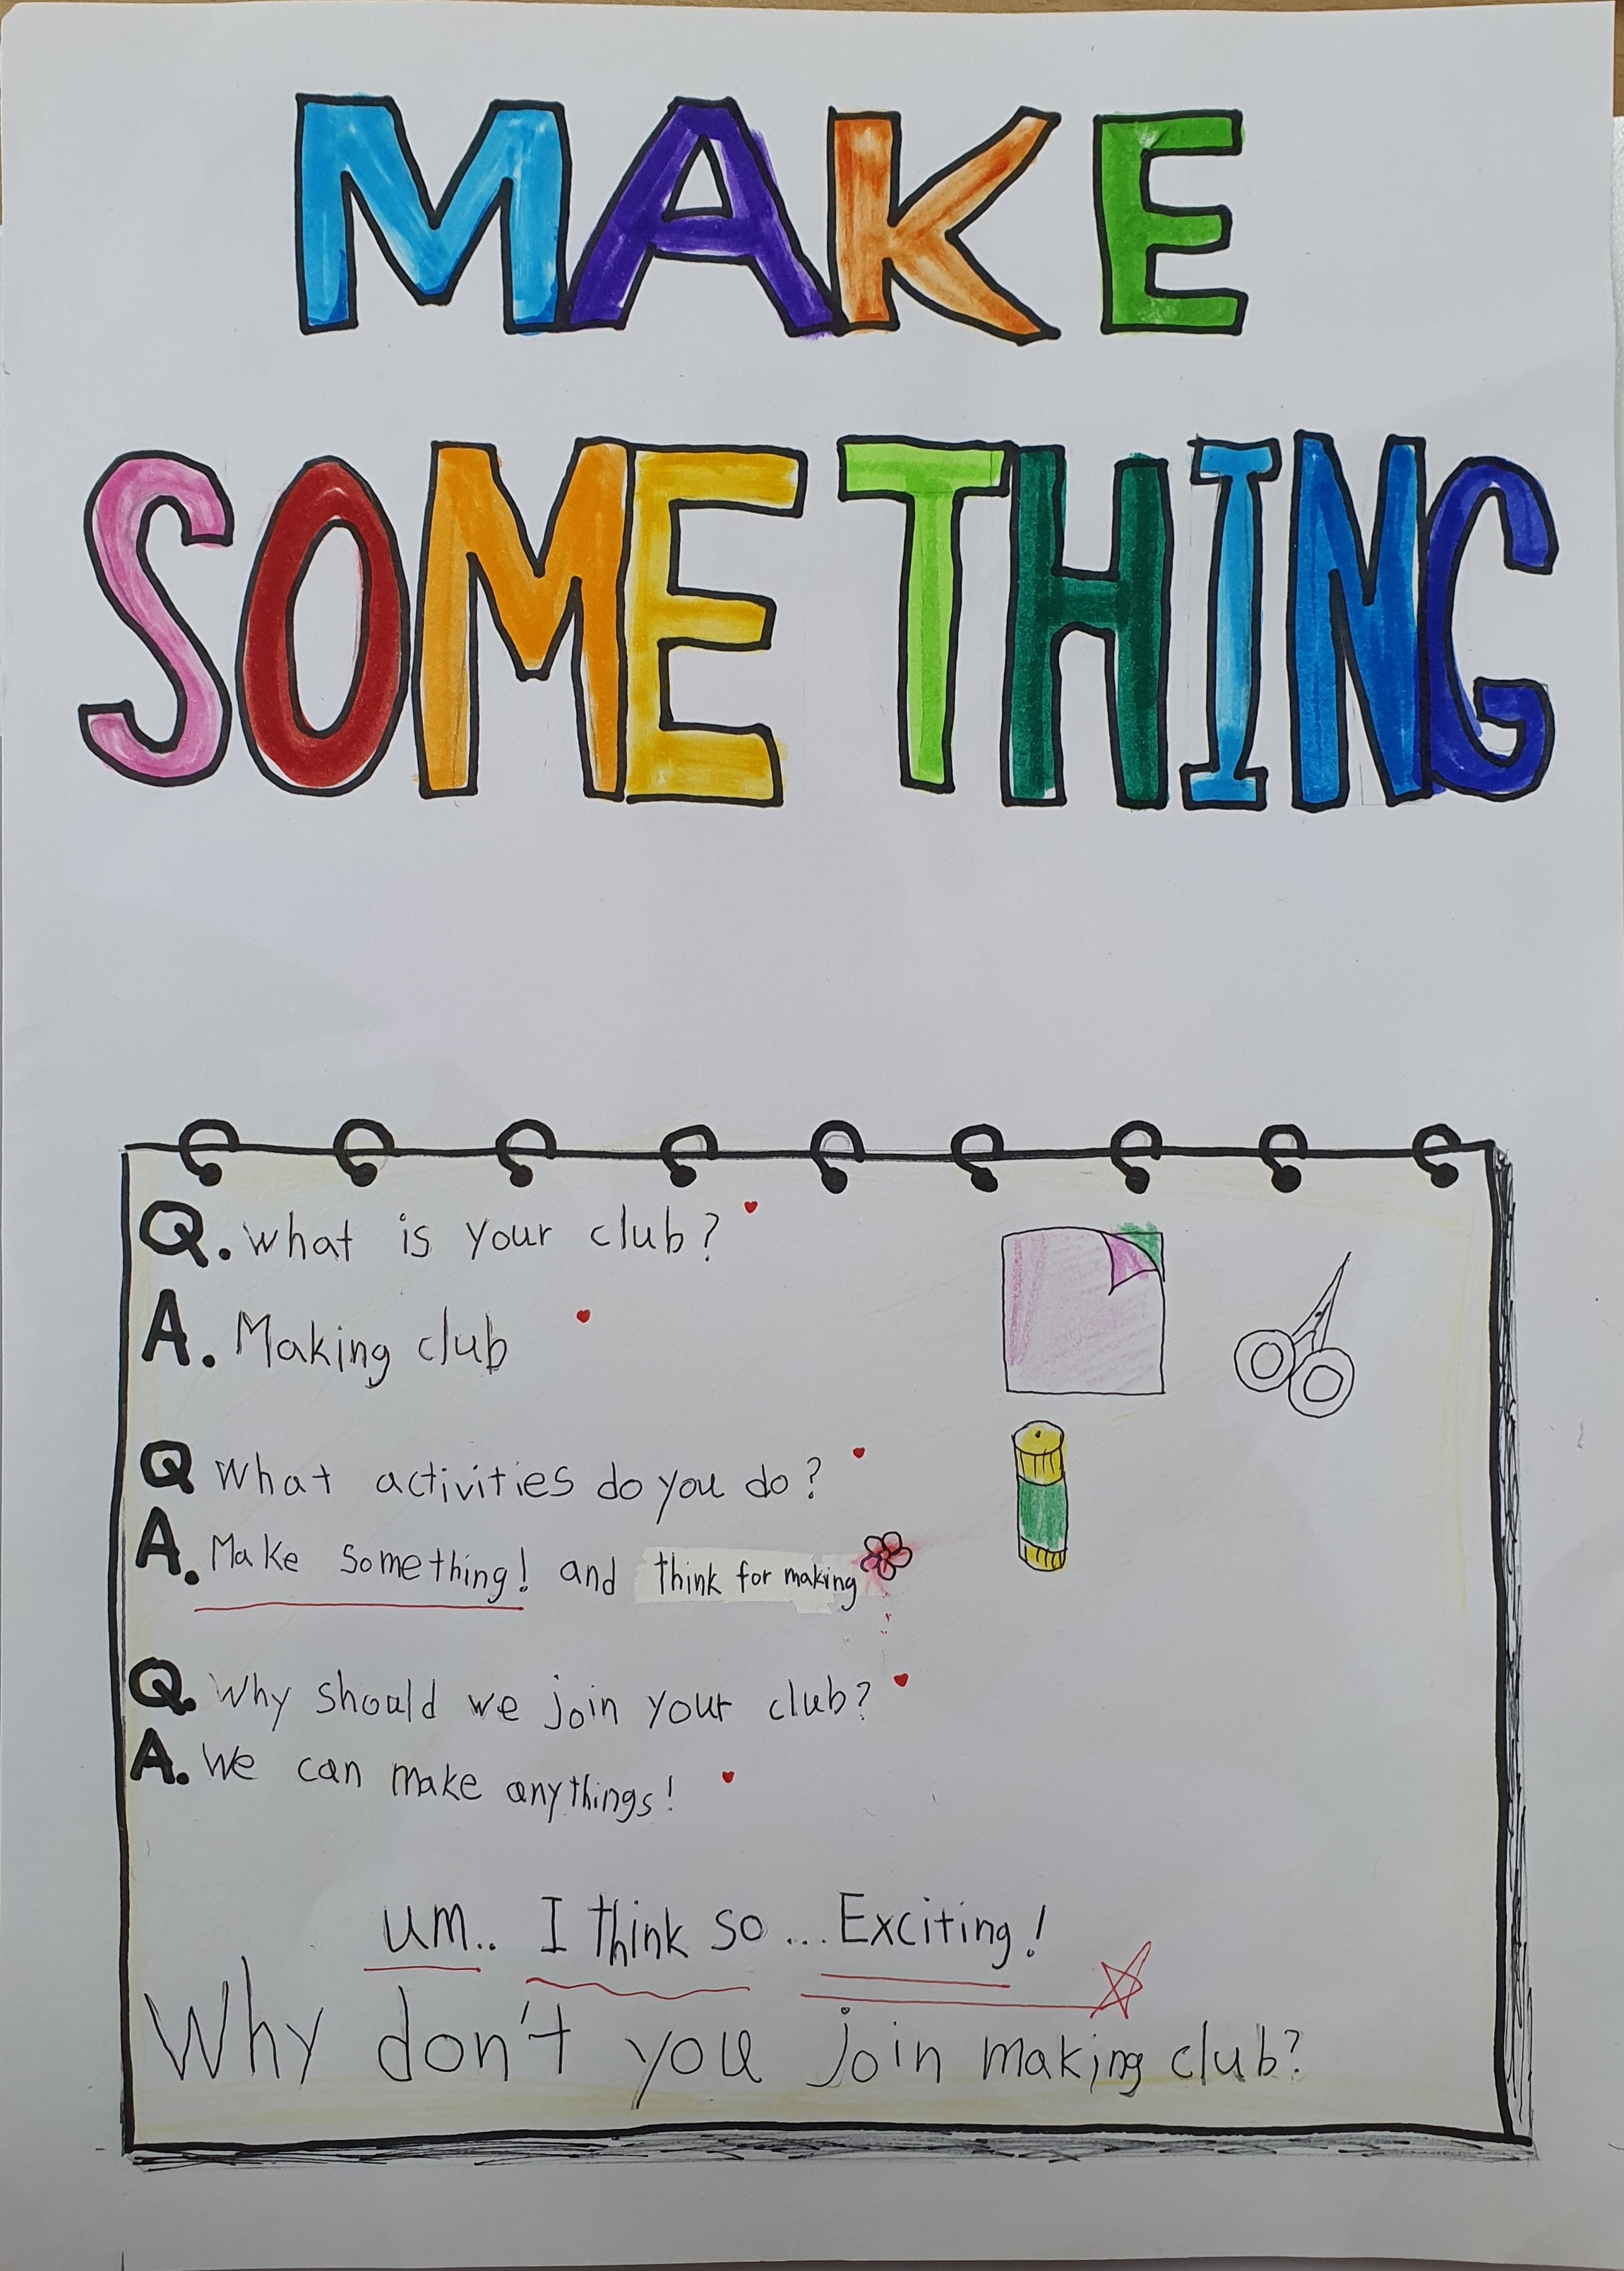 MAKE
SOMETHING
Q. What is your club?
A. Making club
Q What activities do you do?
A. Make something! and think for making
Q. Why should we join your club?
A. We can make anythings!
um.. I think so ... Exciting!
Why don't you join making club?